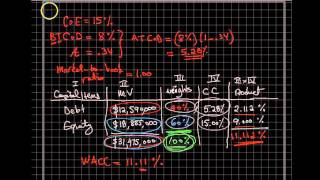 CoE = 15%
BTCoD = 8%
ATCoD = (8%)(1-.34)
t = .34
= 5.28%
Market-to-book ratio = 1.00
I II III IV III x IV
Capital Items MV weights CC Product
Debt $12,590,000 40% 5.28% 2.112 %
Equity $18,885,000 60% 15.00% 9.000 %
$31,475,000 100% 11.112 %
WACC = 11.11 %